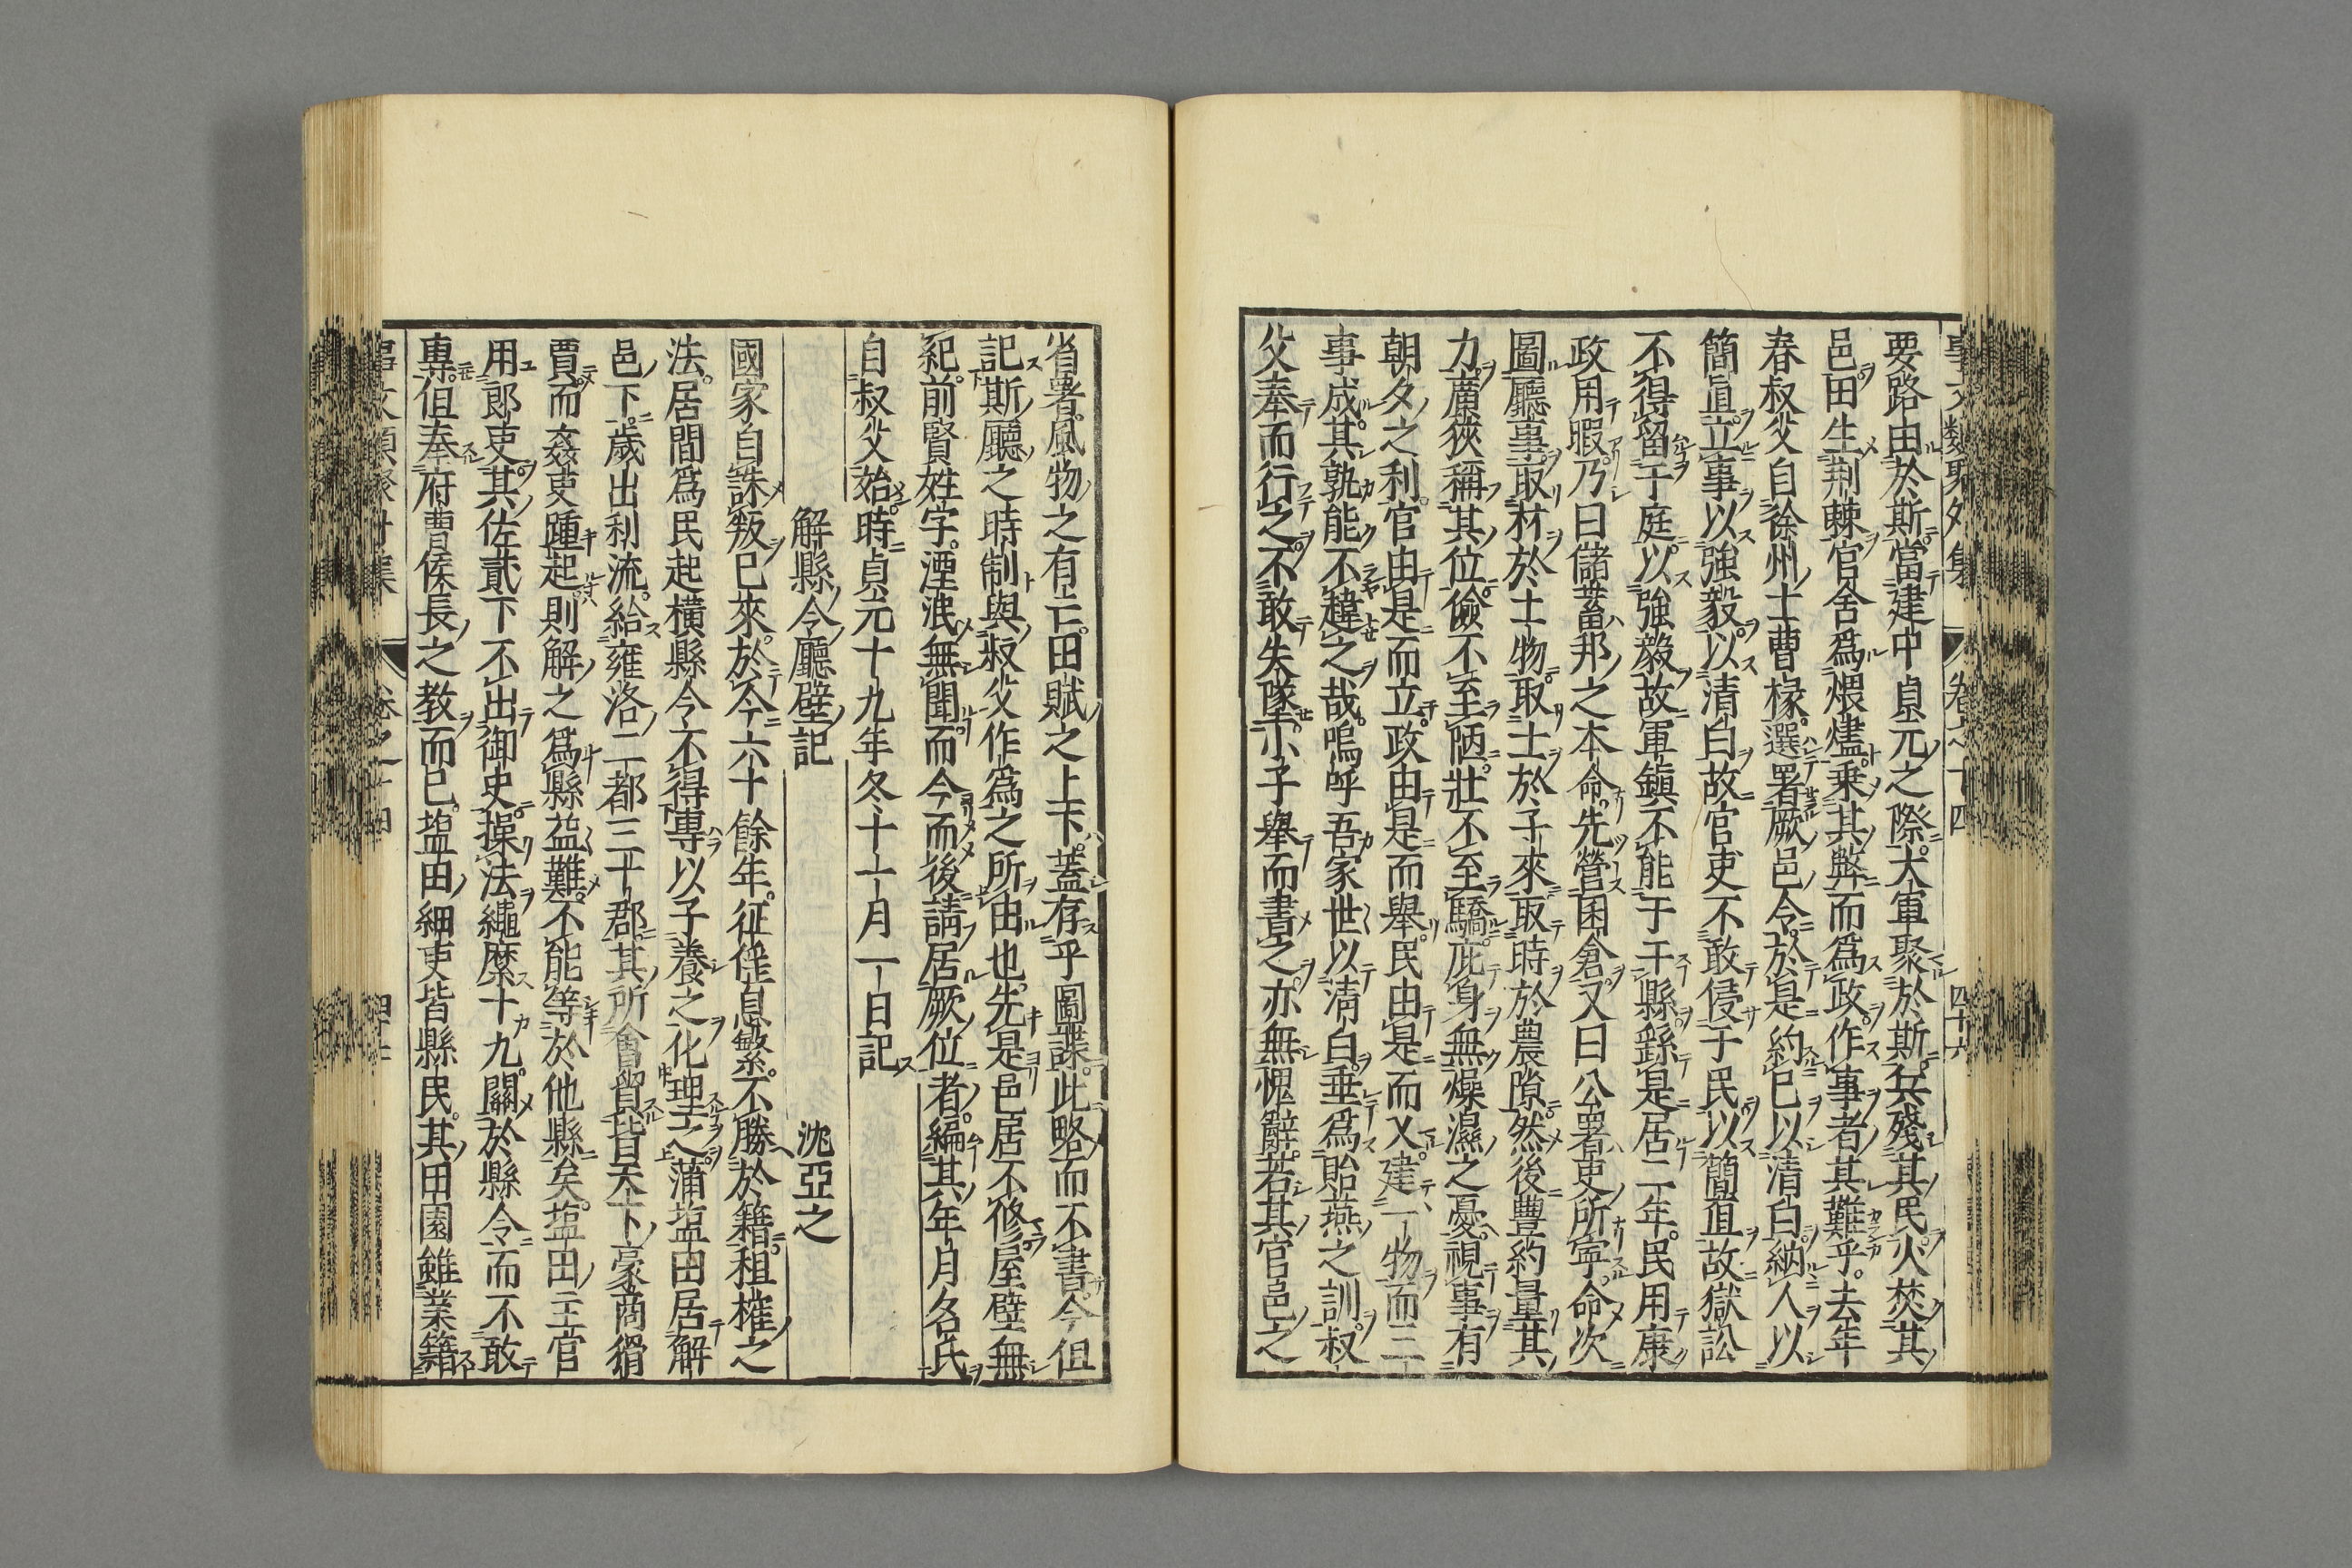 要路由於斯當建中貞元之際大軍聚於斯兵殘其民火焚其
邑田生荆棘官舍爲煨燼乗其弊而爲政作事者其難乎去年
春叔父自徐州士曹掾選署厥邑令於是約已以清白納人以
簡直立事以強毅以清白故官吏不敢侵于民以簡直故獄訟
不得留于庭以強毅故軍鎮不能干于縣繇是居二年民用康
政用暇乃曰儲蓄邦之本命先營囷倉又曰公署吏所寧命次
圖廳事取材於土物取土於子來取時於農隙然後豐約量其
力廣狹稱其位儉不至陋壯不至驕庇身無燥濕之憂視事有
朝夕之利官由是而立政由是而舉民由是而乂建一物而三
事成其孰能不韙之哉嗚呼吾家世以清白垂爲貽燕之訓叔
父奉而行之不敢失墜小子舉而書之亦無愧辭若其官邑之
省署風物之有亡田賦之上下蓋存乎圖諜此略而不書今但
記斯廳之時制與叔父作爲之所由也先是邑居不修屋壁無
紀前賢姓字湮泯無聞而今而後請居厥位者編其年月名氏
自叔父始時貞元十九年冬十一月一日記
解縣令廳壁記 沈亞之
國家自誅叛已來於今六十餘年征徭息繁不勝於籍租榷之
法居間爲民起横縣令不得專以子養之化理之蒲塩田居解
邑下歲出利流給雍洛二都三十郡其所會貿皆天下豪商猾
賈而姦吏踵起則解之爲縣益難不能等於他縣矣塩田主官
用郎吏其佐貳下不出御史操法繩縻十九關於縣令而不敢
專但奉府曹僚長之教而已塩田細吏皆縣民其田園雖業籍